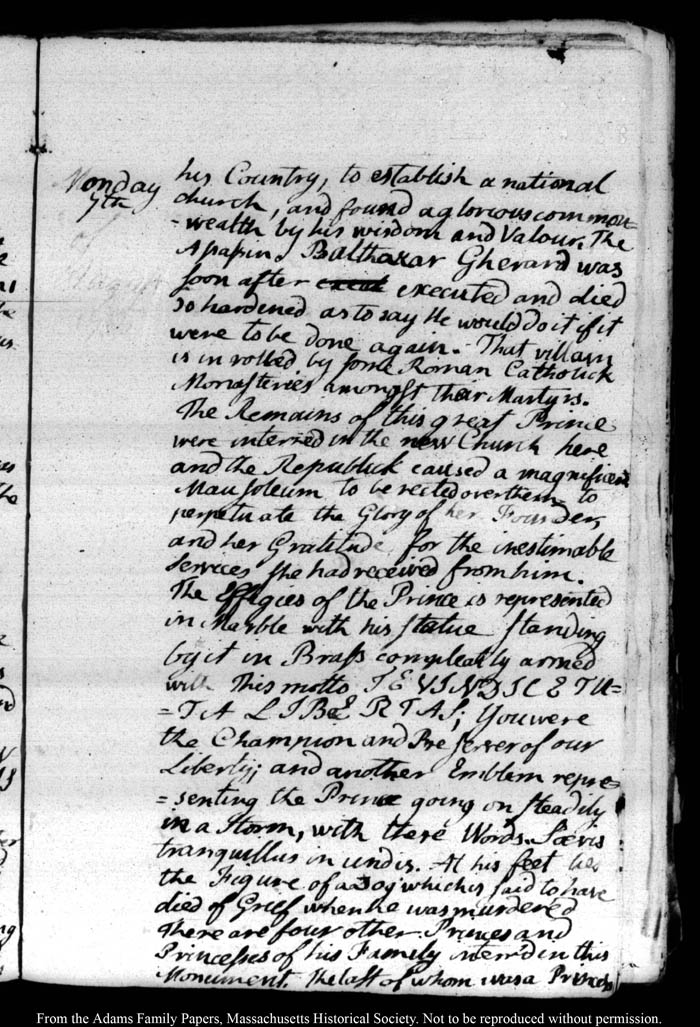 Monday
7th
of
August
his Country, to establish a national
church, and found a glorious common=
=wealth by his wisdom and Valour. The
Assassin Balthazar Gherard was
soon after execut executed and died
so hardened as to say He would do it if it
were to be done again. That villain
is in rolled by some Roman Catholick
Monasteries amongst their Martyrs.
The Remains of this great Prince
were interred in the new Church here
and the Republick caused a magnificent
Mausoleum to be rected over them to
perpetuate the Glory of her Founder,
and her Gratitude for the inestimable
Services she had received from him.
The Effigies of the Prince is represented
in Marble with his statue standing
by it in Brass compleatly armed
with This motto TE VINDICE TU=
=TA LIBERTAS; You were
the Champion and Preserver of our
Liberty; and another Emblem repre=
=senting the Prince going on steadily
in a Storm, with these Words. Sœvis
tranquillus in undis. At his feet lies
the Figure of a Dog which is said to have
died of Grief when he was murdered
There are four other Princes and
Princesses of his Family interr'd in this
Monument. The last of whom was a Princess
From the Adams Family Papers, Massachusetts Historical Society. Not to be reproduced without permission.